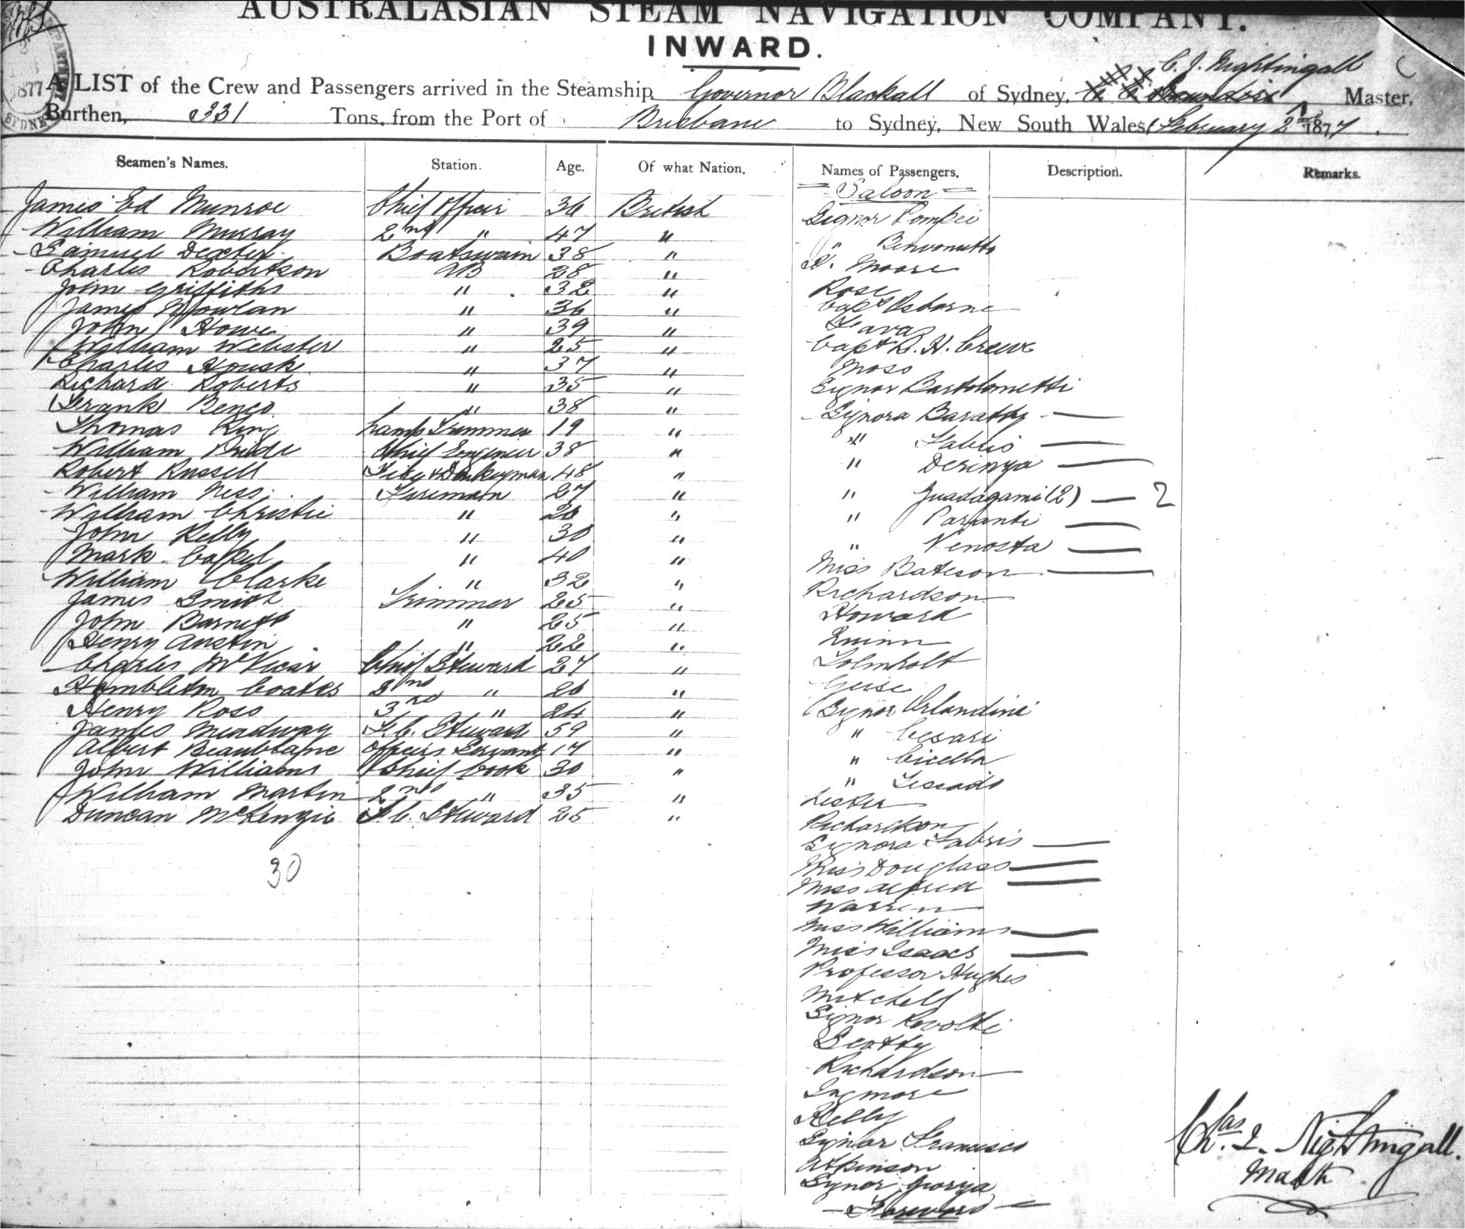 AUSTRALASIAN STEAM NAVIGATION COMPANY.
INWARD.
C. J. Nightingall
A LIST of the Crew and Passengers arrived in the Steamship Governor Blackall of Sydney, Master,
Burthen, 331 Tons, from the Port of Brisbane to Sydney, New South Wales, February 2nd 1877.
Seamen's Names. Station. Age. Of what Nation. Names of Passengers. Description. Remarks.
James Ed Munroe Chief Officer 36 British
William Murray 2nd " 47 "
Samuel Dexter Boatswain 38 "
Charles Robertson AB 28 "
John Griffiths " 32 "
James Nowlan " 36 "
John Howe " 39 "
William Webster " 25 "
Charles " 37 "
Richard Roberts " 35 "
Frank " 38 "
Thomas King Lamp Trimmer 19 "
William Chief Engineer 38 "
Robert Russell & Donkeyman 48 "
William Ness Fireman 27 "
William Christie " "
John Kelly " 30 "
Mark " 40 "
William Clarke " 32 "
James Smith Trimmer 25 "
John Barnett " 25 "
Henry Austin " 22 "
Charles McVicar Chief Steward 27 "
Hambleton Coates 2nd " "
Henry Ross 3rd " 24 "
James Meadway F.C. Steward 59 "
Albert Officers Servant 17 "
John Williams Chief Cook 30 "
William Martin 2nd " 35 "
Duncan McKenzie F.C. Steward 25 "
30
Saloon
Signor Pompei
" Benvonutto
Moore
Rose
Capt Osborne
Capt R. H. Crewe
Moss
Signor Bartolometti
Signora Baratty
"
" Derinya
" Guadagami (2) 2
" Paranti
" Venosta
Miss Bateson
Richardson
Howard
Quinn
Geise
Signor Orlandini
" Cesari
" Cicella
"
Lester
Richardson
Signora Fabris
Miss Douglass
Miss Alfred
Warren
Miss Williams
Miss Isaacs
Professor Hughes
Mitchell
Signor
Beatty
Richardson
Ingmore
Kelly
Signor Francisco
Atkinson
Signor Giorza
Forward
Chas. J. Nightingall.
Mastr